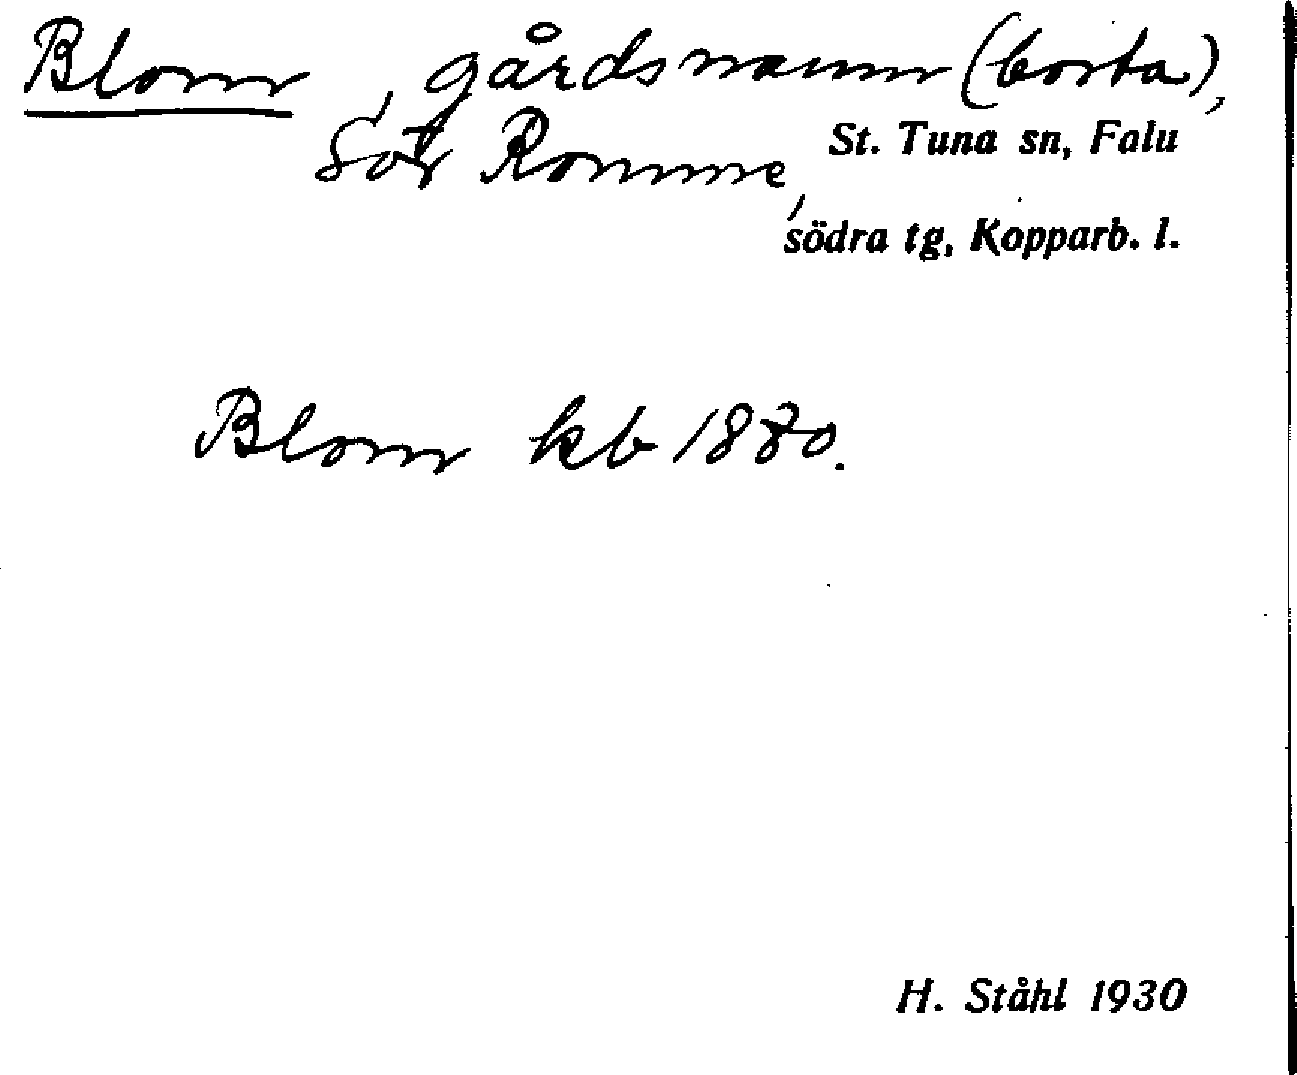 Blom, gårdsnamn (borta),
Sör Romme, St. Tuna sn, Falu
södra tg, Kopparb. l.
Blom kb 1880.
H. Ståhl 1930